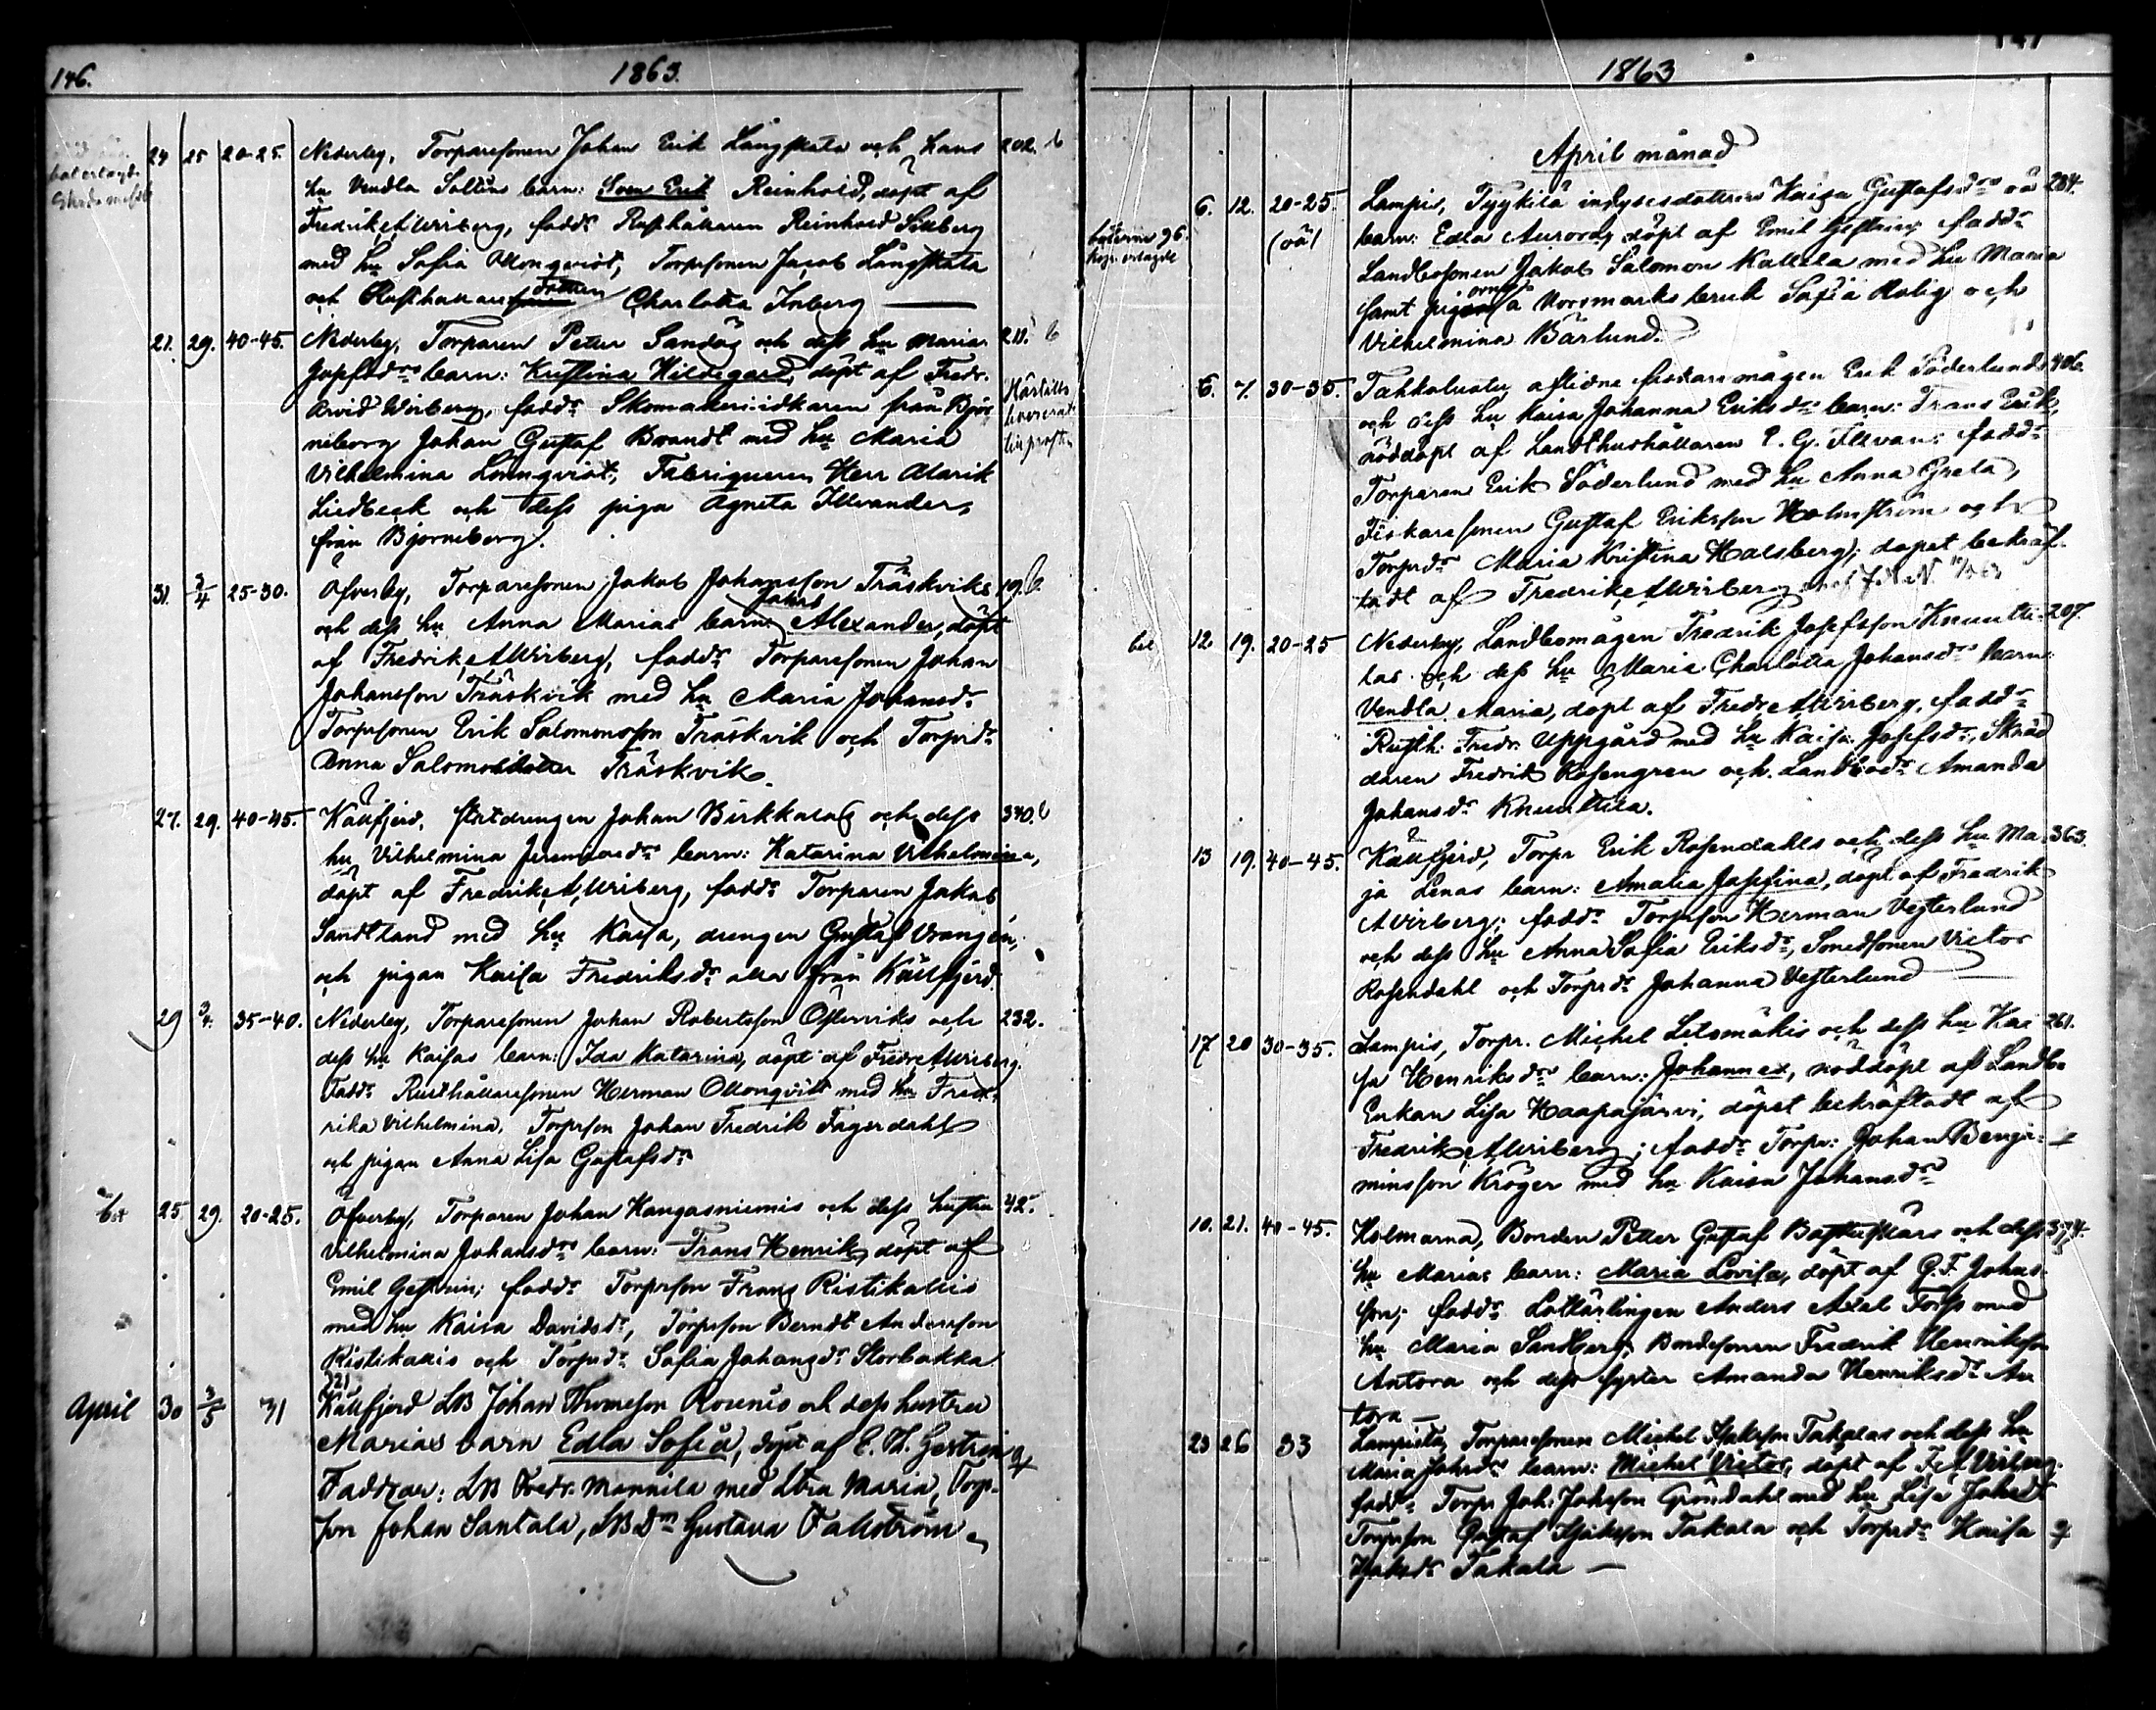 146. 1863.
24 25 20-25. Nederby, Torparesonen Johan Erik Långskata och hans 202. b
hu Vendla Sallins barn: Sven Erik Reinhold, döpt af
Fredrik A Wirberg, faddr Rusthållaren Reinhold
med hu Sofia Ollonqvist, Torpsonen Jacob Långskata
och Rusthållaredottren Charlotta Inberg
21. 29. 40-45. Nederby, Torparen Peter Sandös och dess hu Maria 211. b
Josefsdrs barn: Kristina Hildegard, döpt af Fredr.
Arvid Wirberg, faddr Skomakeriidkaren från Björ
neborg Johan Gustaf Brandt med hu Maria
Vilhelmina Lönnqvist, Fabriqueuren Herr Alarik
Liedbeck och dess piga Agneta Illvander,
från Björneborg.
31. 3/4 25-30. Öfverby, Torparesonen Jakob Johansson Träskviks 19. b
och dess hu Anna Marias barn: Jakob Alexander, döpt
af Fredrik A Wirberg, faddr Torparesonen Johan
Johansson Träskvik med hu Maria Johansdr
Torpsonen Erik Salomonsson Träskvik och Torpdr
Anna Salomonsdotter Träskvik.
27. 29. 40-45. Kållfjerd, Statdrengen Johan Birkkalas och dess 340. b
hu Vilhelmina Jeremiasdrs barn: Katarina Vilhelmina,
döpt af Fredrik A Wirberg, faddr Torparen Jakob
Sandstrand med hu Kaisa, drengen Gustaf Vrangén,
och pigan Kaisa Fredriksdr alla från Kållfjerd.
29 3/4. 35-40. Nederby, Torparesonen Johan Robertsson Österviks och 232.
dess hu Kaisas barn: Ida Katarina, döpt af Fredr A Wirberg.
Faddr Rusthållaresonen Herman Ollonqvist med hu Fred-
rika Vilhelmina, Torpson Johan Fredrik Fagerdahl
och pigan Anna Lisa Gustafsdr
bet 25 29. 20-25. Öfverby, Torparen Johan Kangasniemis och dess hustru 42.
Vilhelmina Johansdrs barn: Frans Henrik, döpt af
Emil Gestrin; faddr Torpson Frans Ristikallio
med hu Kaisa Davidsdr, Torpson Berndt Andersson
Ristikallio och Torpdr Sofia Johansdr Storbakka
321
April 30 3/5 31 Kållfjerd LB Johan Thomeson Rosenis och dess hustru
Marias barn Edla Sofia, döpt af E. Th. Gestrin
Faddrar: LB Fredr. Mannila med hstru Maria, Torp-
son Johan Santala, LBdr Gustava Fallström
1863
April månad
6. 12. 20-25. Lampis, Tyykilä inhysesdottren Kaisa Gustafsdrs oä 284.
(oä) barn: Edla Aurora, döpt af Emil Gestrin; faddr
Landbosonen Jakob Salomon Kallela med hu Maria
samt pigorna å Norrmarks bruk Sofia Rolig och
Vilhelmina Bärlund.
6. 7. 30-35. Tahkoluoto, aflidne fiskaremågen Erik Söderlunds 406.
och dess hu Kaisa Johanna Eriksdrs barn: Frans Erik,
nöddöpt af Landthushållaren faddr
Torparen Erik Söderlund med hu Anna Greta,
Fiskaresonen Gustaf Eriksson Holmström och
Torpdr Maria Kristina Halsberg; dopet bekräf-
tadt af Fredrik A Wirberg
bet 12 19. 20-25 Nederby, Landbomågen Fredrik Josefsson Knuutti- 207.
las och dess hu Maria Charlotta Johansdrs barn
Vendla Maria, döpt af Fredr A Wirberg, faddr
Rusth. Fredr. Uppgård med hu Kaisa Josefsdr, Skräd
daren Fredrik Rosengren och Landbodr Amanda
Johansdr Knuuttila.
13 19. 40-45. Kållfjerd, Torpr Erik Rosendahls och dess hu Ma- 363.
ja Lenas barn: Amalia Josefina, döpt af Fredrik
A Wirberg; faddr Torpson Herman Vesterlund
och dess hu Anna Sofia Eriksdr, Smedsonen Victor
Rosendahl och Torpdr Johanna Vesterlund
17 20 30-35. Lampis, Torpr. Michel Letsmäkis och dess hu Kai 261.
sa Henriksdrs barn: Johannes, nöddöpt af Landbo
Enkan Lisa Haapajärvi, dopet bekräftadt af
Fredrik A Wirberg; faddr Torpr: Johan Benja-
minsson Kröger med hu Kaisa Johansdr
10. 21. 40-45. Holmarna, Bonden Petter Gustaf Bastuskärs och dess 374.
hu Marias barn: Maria Lovisa, döpt af G. F. Johns-
son; faddr Lotslärlingen Anders Axel Forss med
hu Maria Sandberg, Bondesonen Fredrik Henriksson
Antora och dess syster Amanda Henriksdr An
tora
23 26 33 Lampista, Torparesonen Michel Isaksson Takalas och dess hu
Maria Johsdrs barn: Michel Victor, döpt af F A Wirberg.
faddr Torpr Joh: Johsson Gröndahl med hu Lisa Johsdr
Torpson Gustaf Isaksson Takala och Torpdr Kaisa
Isaksdr Takala